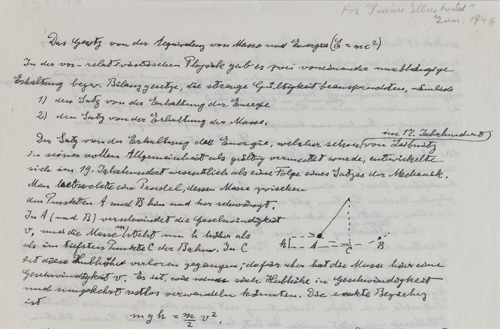 For "Science Illustrated"
Juni. 1946
Das Gesetz von der Aequivalenz von Masse und Energie (E = mc²)
In der vor-relativistischen Physik gab es zwei voneinander unabhängige
Erhaltung bezw. Bilanzgesetze, die strenge Gültigkeit beanspruchten, nämlich
1) den Satz von der Erhaltung der Energie
2) den Satz von der Erhaltung der Masse.
im 17. Jahrhundert
Der Satz von der Erhaltung der Energie, welcher schon von Leibnitz
in seiner vollen Allgemeinheit als gültig vermutet wurde, entwickelte
sich im 19. Jahrhundert wesentlich als eine Folge eines Satzes der Mechanik.
Man betrachte ein Pendel, dessen Masse zwischen
den Punkten A und B hin und her schwingt.
In A (und B) verschwindet die Geschwindigkeit
v, und die Masse m steht um h höher als
als im tiefsten Punkte C der Bahn. In C
ist diese Hubhöhe verloren gegangen; dafür aber hat die Masse hier eine
Geschwindigkeit v. Es ist, wie wenn sich Hubhöhe in Geschwindigkeit
und umgekehrt restlos verwandeln könnten. Die exakte Beziehung
ist
m g h = m/2 v²,
h
A
C
B